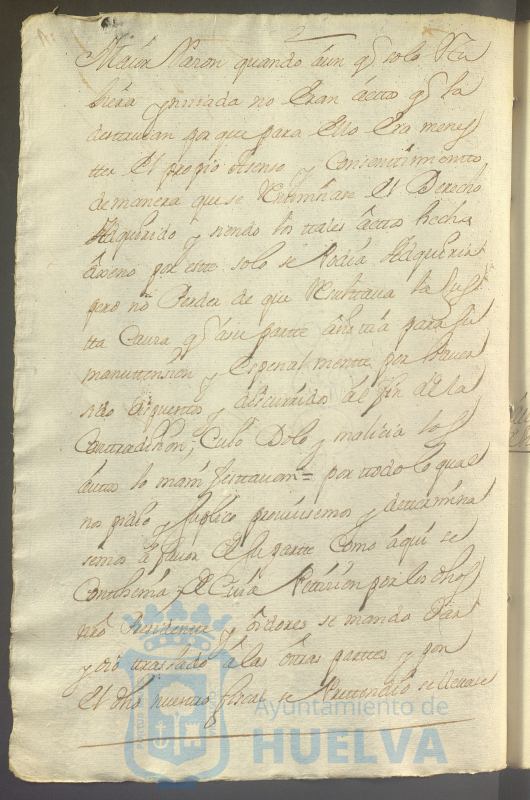 Maior Razon quando aun q̃ solo Hu
viera ynuiada no Eran actos q̃ la
destruian porque para Ello Era menes
tter El propio asenso y Consentimiento
demanera que se Extinguiese El Derecho
Adquerido y siendo los ttales acttos hechos
por estte solo se Podia Adquerir
pero no Perder de que Resulttaua la Jus
tta Causa q̃ asu partte asistia para su
manuttension y Espezialmentte por hauer
sido y discurridos al fin de la
Contradizion, Cuio Dolo y malizia los
auttos lo manifesttauan = por ttodo lo qual
nos pidio y suplico proueiesemos y determina
semos a fauor de su partte Como aqui se
Conthenia y de Cuia Petizion por los dhos
nrõ Presidentte y oidores se mando Dar
y dio ttraslado a las ôttras parttes y por
El dho nuestro fiscal se Prettendio se
Ayuntamiento de
HUELVA